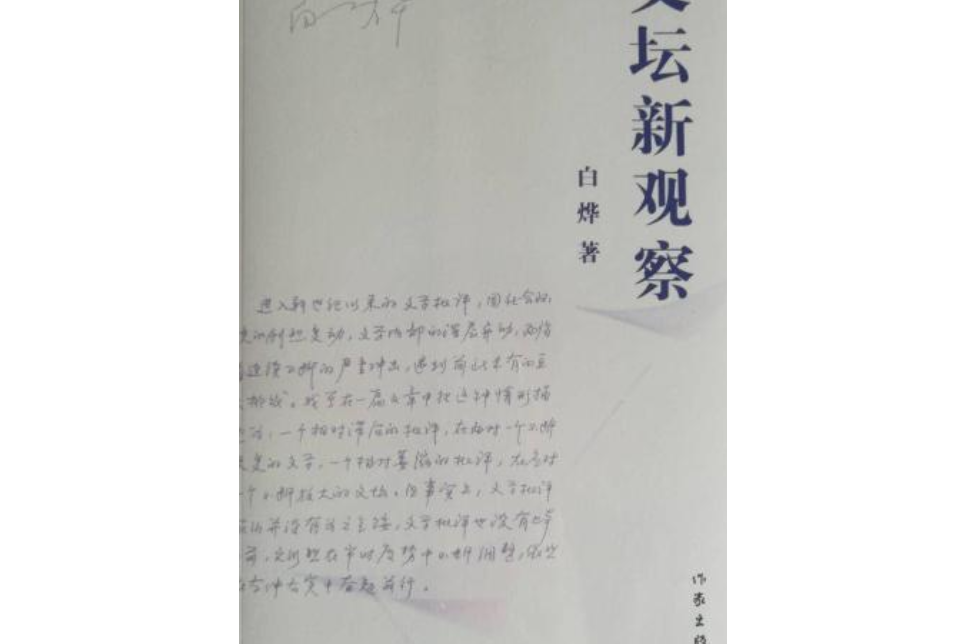 文坛新观察
白烨 著
进入新世纪以来的文学批评,因社会的
剧烈变动,文学内部的深层异动,
连续不断的严重冲击,遇到前所未有的巨
挑战。我曾在一篇文章中把这种情形描
一个相对滞后的批评,在面对一个不断
变的文学,一个相对萎缩的批评,在应对
个不断放大的文坛。但事实上,文学批评
并没有,文学批评也没有止步
前,依然在审时度势中不断调整,依然
在左冲右突中奋起前行。
作家出版